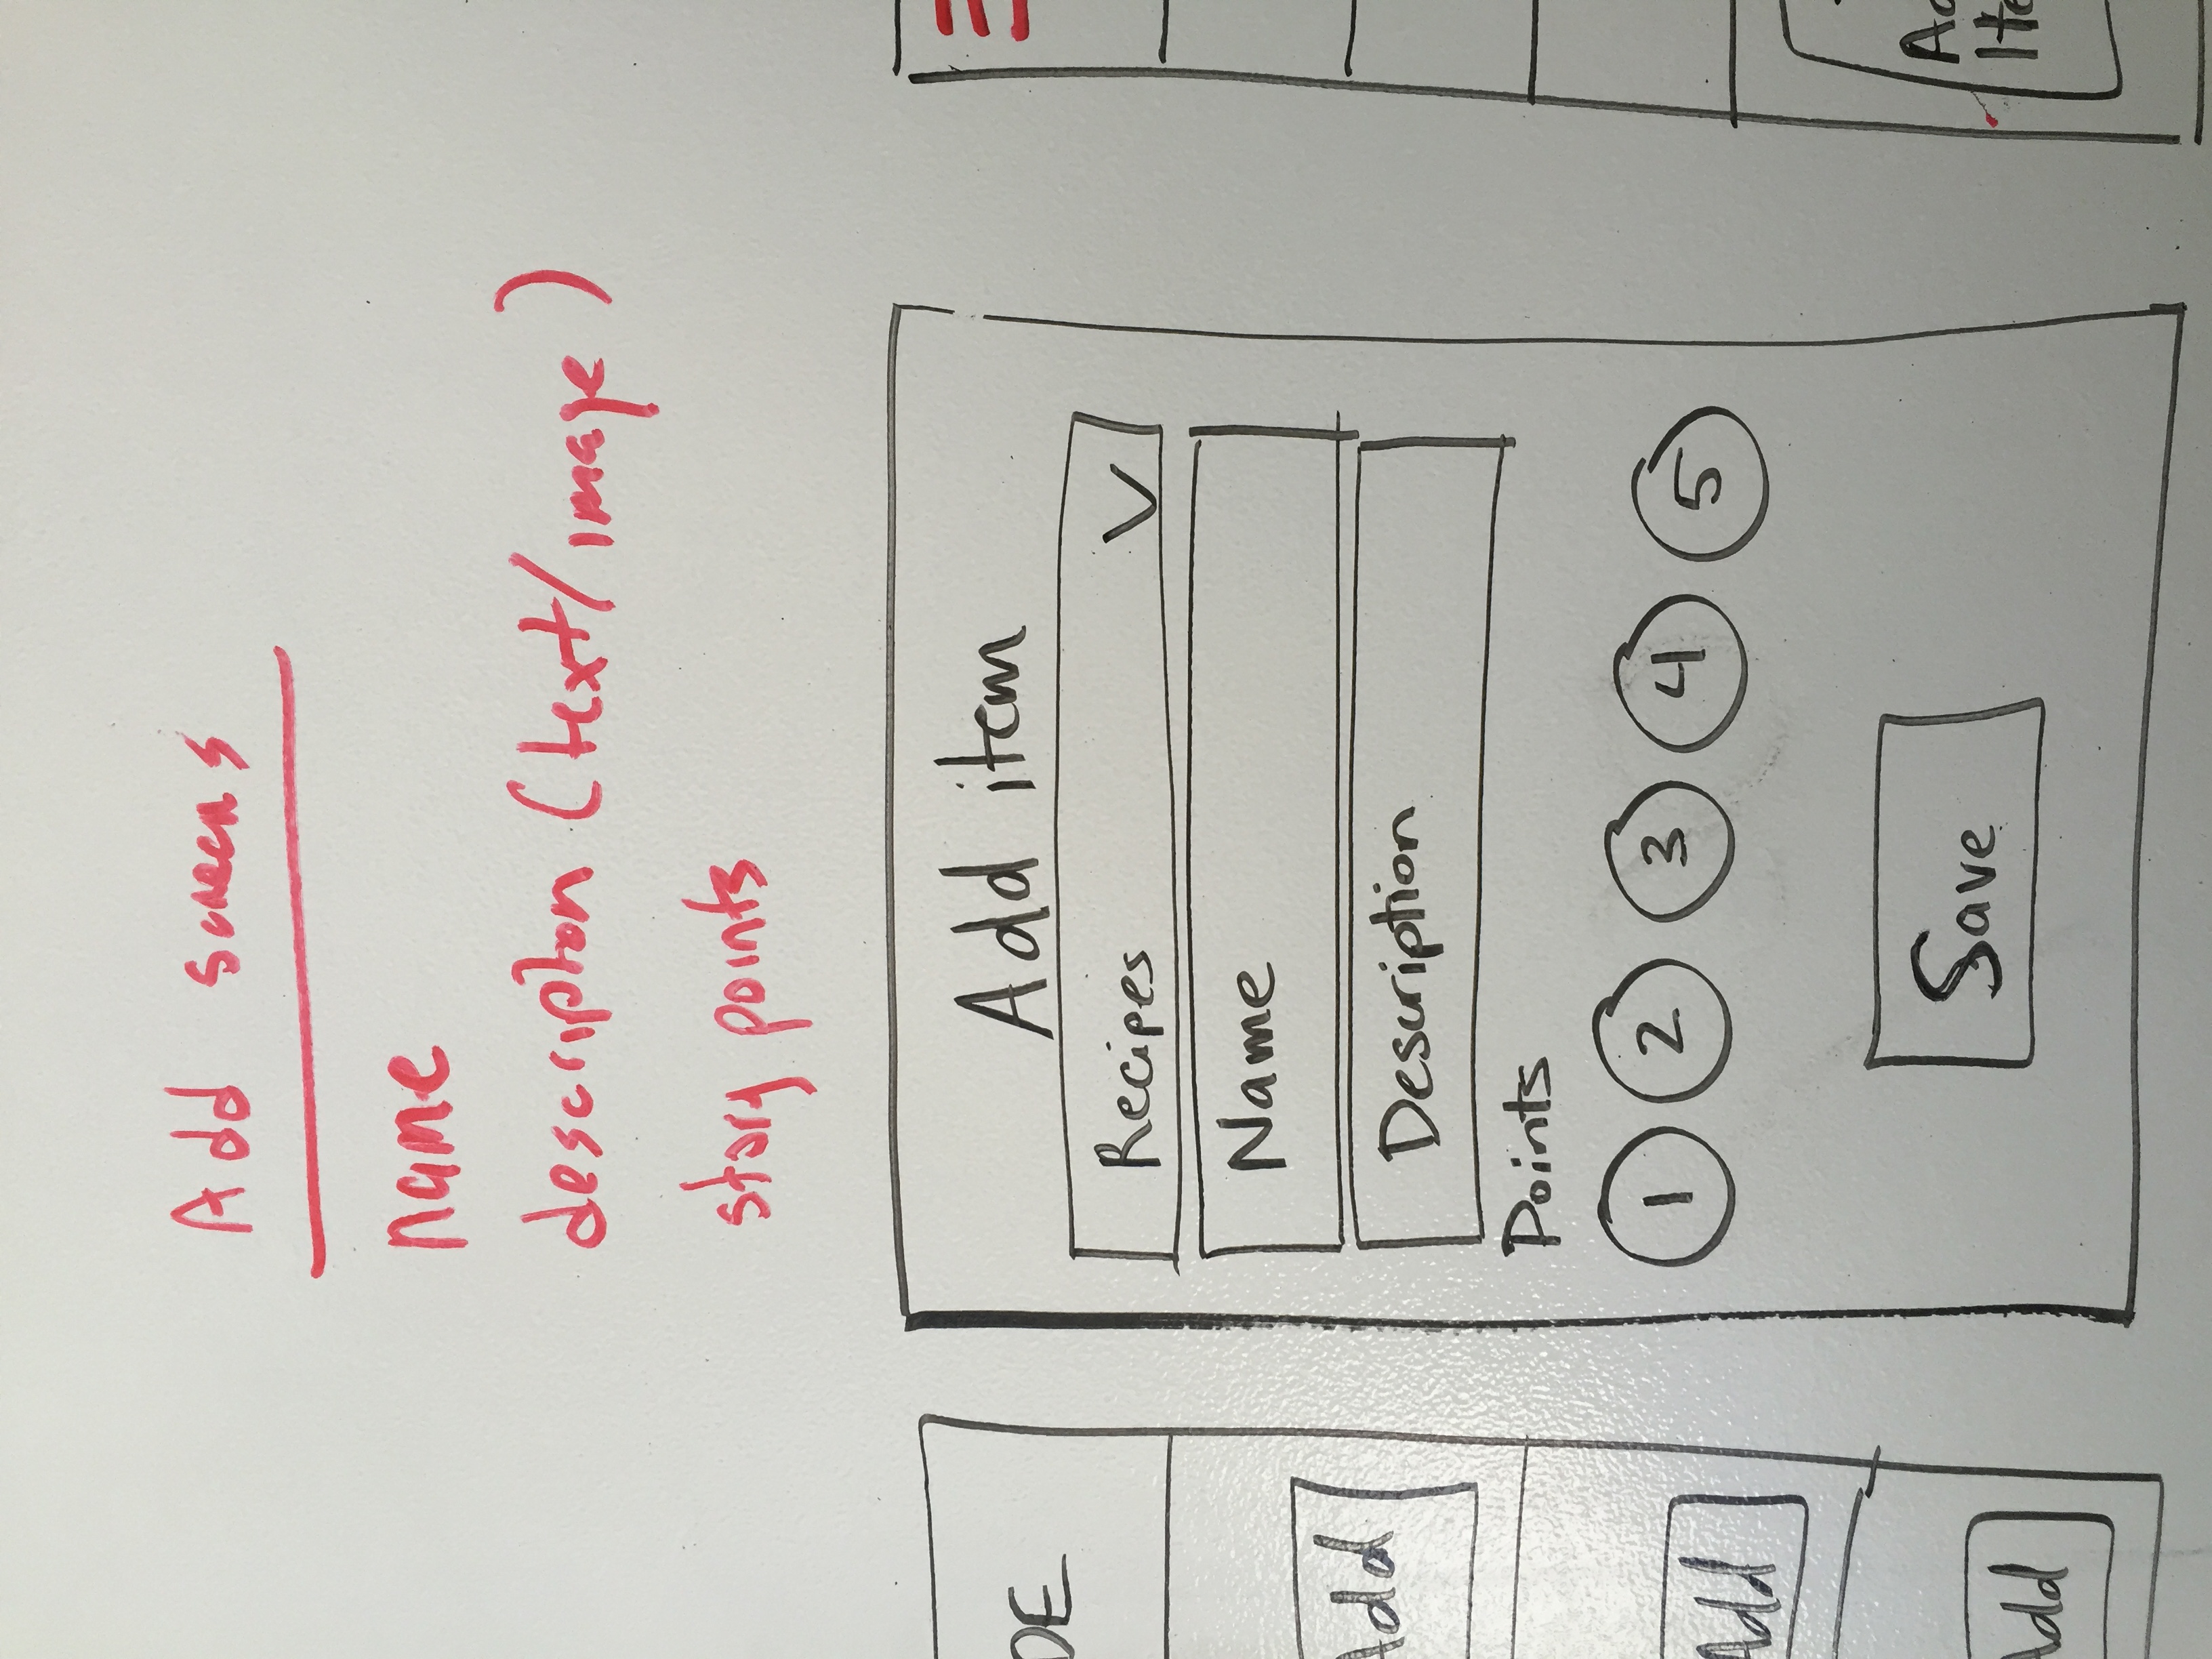 Add screens
name
description (text/image)
story points
DE
Add
Add
Add
Add item
Recipes
Name
Description
Points
1 2 3 4 5
Save